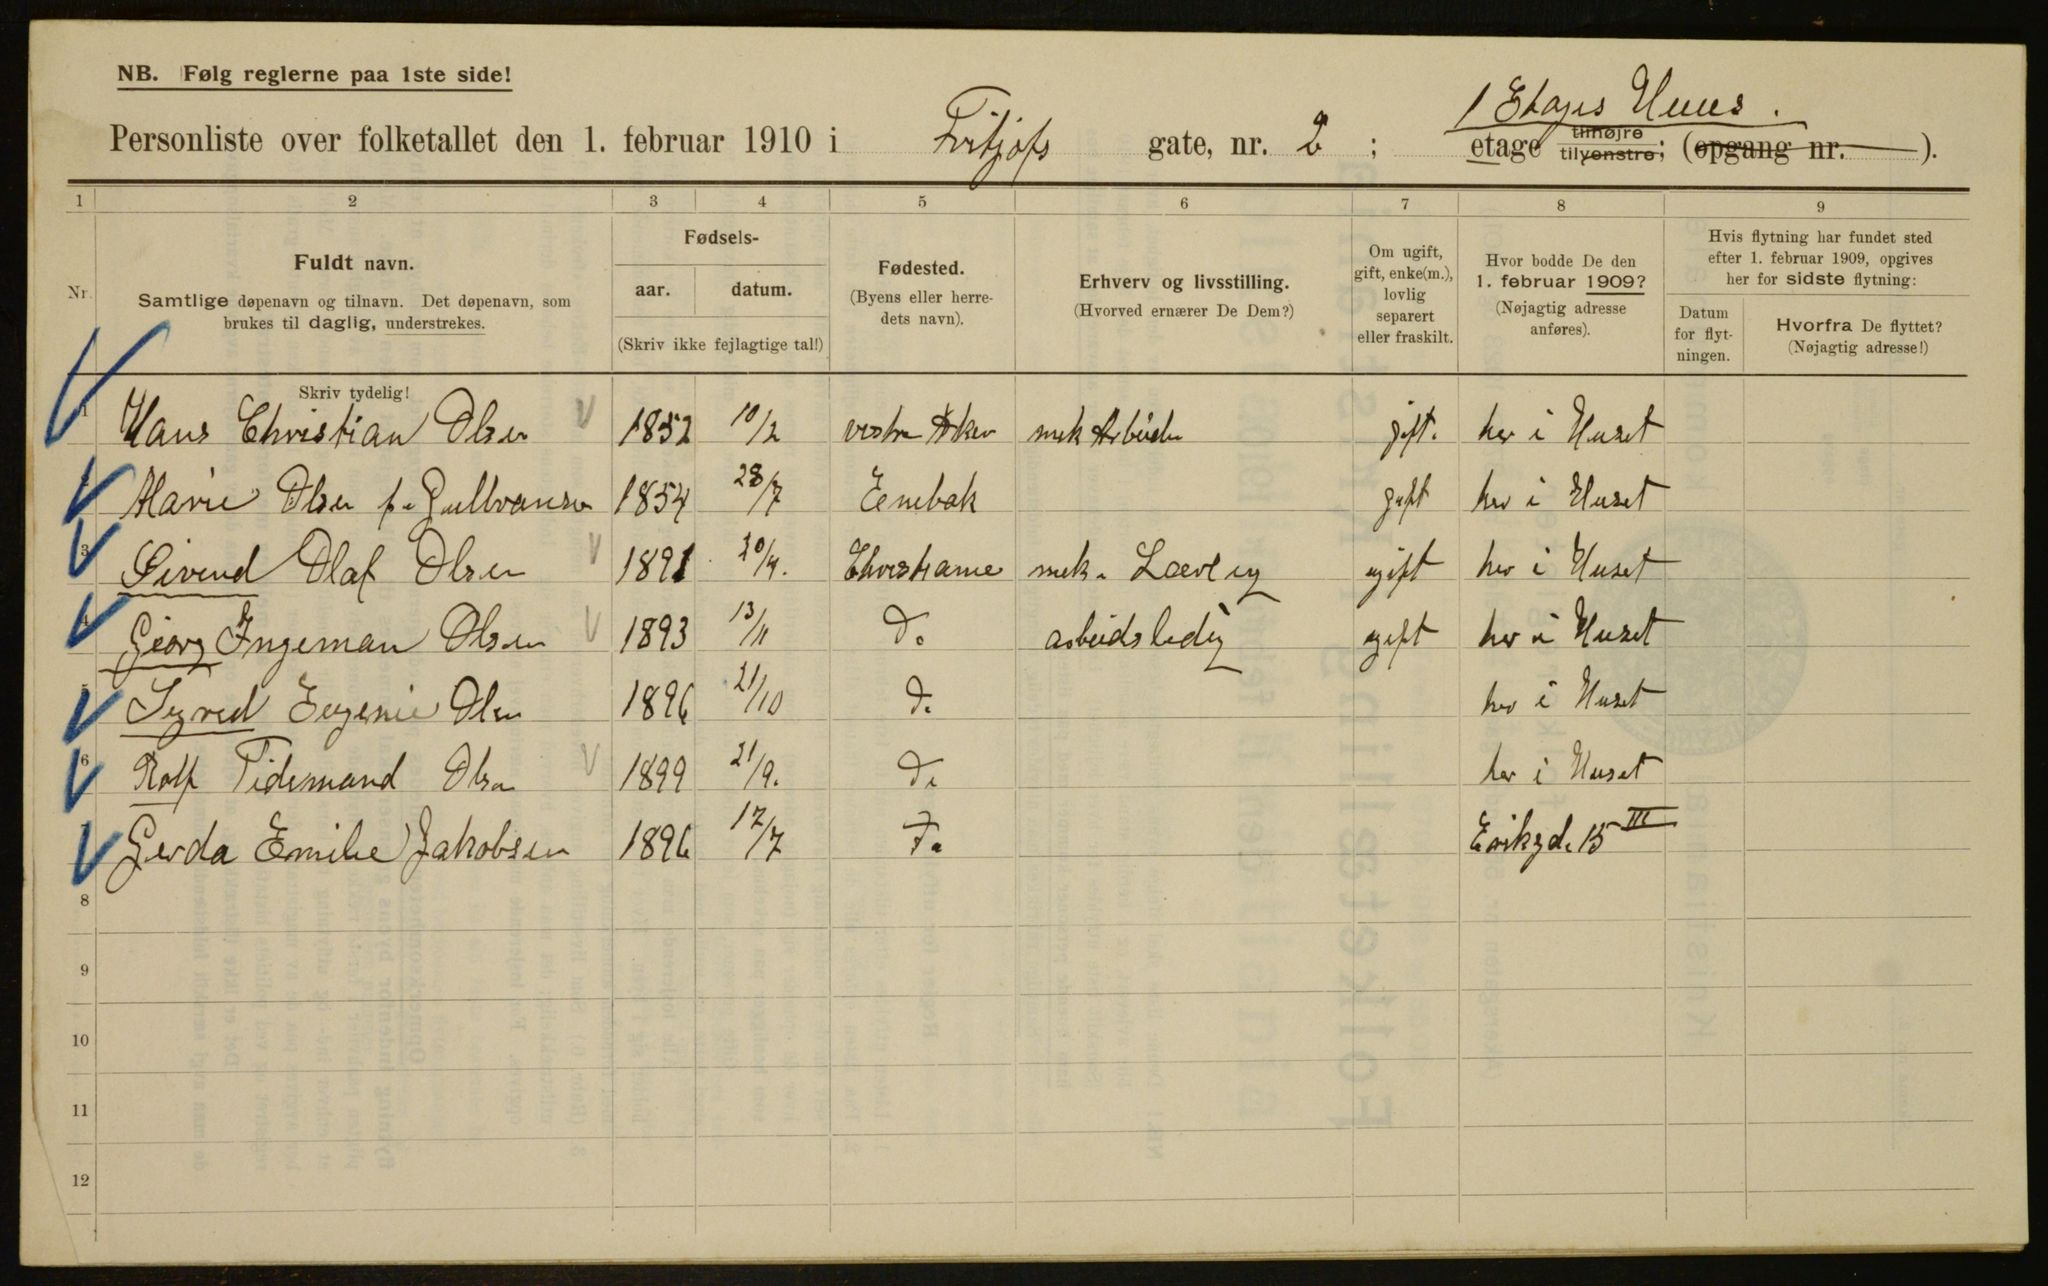 NB. Følg reglerne paa 1ste side!
1 Etages Huus.
Personliste over folketallet den 1. februar 1910 i Fritjofs gate, nr. 2; etage tilhøjre tilvenstre; (opgang nr. ).
1 2 3 4 5 6 7 8 9
Nr.
Fuldt navn.
Samtlige døpenavn og tilnavn. Det døpenavn, som
brukes til daglig, understrekes.
Skriv tydelig!
Fødsels-
aar. datum.
(Skriv ikke fejlagtige tal!)
Fødested.
(Byens eller herre-
dets navn).
Erhverv og livsstilling.
(Hvorved ernærer De Dem?)
Om ugift,
gift, enke(m.),
lovlig
separert
eller fraskilt.
Hvor bodde De den
1. februar 1909?
(Nøjagtig adresse
anføres).
Hvis flytning har fundet sted
efter 1. februar 1909, opgives
her for sidste flytning:
Datum
for flyt-
ningen.
Hvorfra De flyttet?
(Nøjagtig adresse!)
1 Hans Christian Olsen 1852 10/2 vestre Aker mek Arbeider gift. her i Huset
Marie Olsen f. Gulbransen 1854 28/7 Eenebak gift her i Huset
3 Eivind Olaf Olsen 1891 20/4. Christiania mek. Lærling ugift her i Huset
4 Georg Ingeman Olsen 1893 13/11 do arbeidsledig ugift her i Huset
5 Sigred Eugenie Olsen 1896 21/10 do her i Huset
6 Rolf Tidemand Olsen 1899 21/9. do her i Huset
Gerda Emilie Jakobsen 1896 17/7 Eriksgd. 15 III
8
9
10
11
12